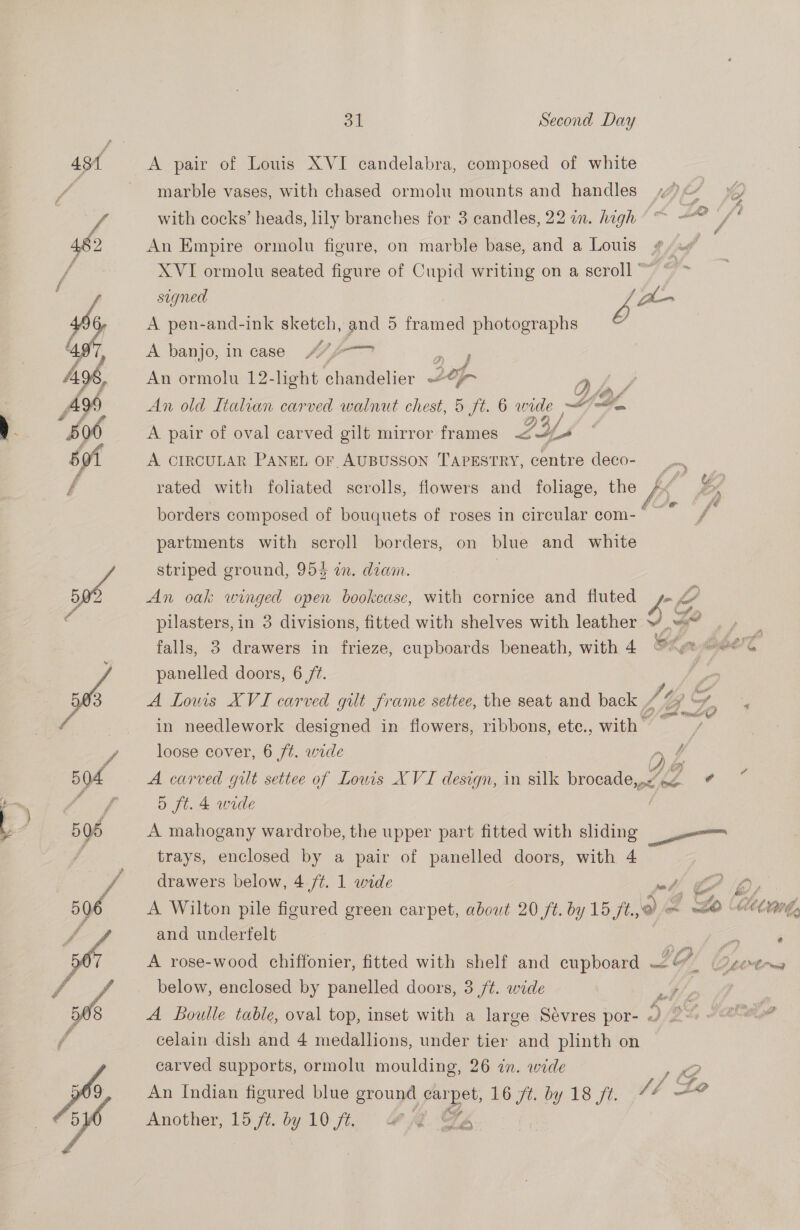 31 Second Day
481 A pair of Louis XVI candelabra, composed of white
marble vases, with chased ormolu mounts and handles
with cocks' heads, lily branches for 3 candles, 22 in. high
482 An Empire ormolu figure, on marble base, and a Louis
XVI ormolu seated figure of Cupid writing on a scroll
signed
496, A pen-and-ink sketch, and 5 framed photographs
497, A banjo, in case
498, An ormolu 12-light chandelier
499 An old Italian carved walnut chest, 5 ft. 6 wide
500 A pair of oval carved gilt mirror frames
501 A CIRCULAR PANEL OF AUBUSSON TAPESTRY, centre deco-
rated with foliated scrolls, flowers and foliage, the
borders composed of bouquets of roses in circular com-
partments with scroll borders, on blue and white
striped ground, 95½ in. diam.
502 An oak winged open bookcase, with cornice and fluted
pilasters, in 3 divisions, fitted with shelves with leather
falls, 3 drawers in frieze, cupboards beneath, with 4
panelled doors, 6 ft.
503 A Louis XVI carved gilt frame settee, the seat and back
in needlework designed in flowers, ribbons, etc., with
loose cover, 6 ft. wide
504 A carved gilt settee of Louis XVI design, in silk brocade,
5 ft. 4 wide
505 A mahogany wardrobe, the upper part fitted with sliding
trays, enclosed by a pair of panelled doors, with 4
drawers below, 4 ft. 1 wide
506 A Wilton pile figured green carpet, about 20 ft. by 15 ft.,
and underfelt
507 A rose-wood chiffonier, fitted with shelf and cupboard
below, enclosed by panelled doors, 3 ft. wide
508 A Boulle table, oval top, inset with a large Sèvres por-
celain dish and 4 medallions, under tier and plinth on
carved supports, ormolu moulding, 26 in. wide
509, An Indian figured blue ground carpet, 16 ft. by 18 ft.
510 Another, 15 ft. by 10 ft.